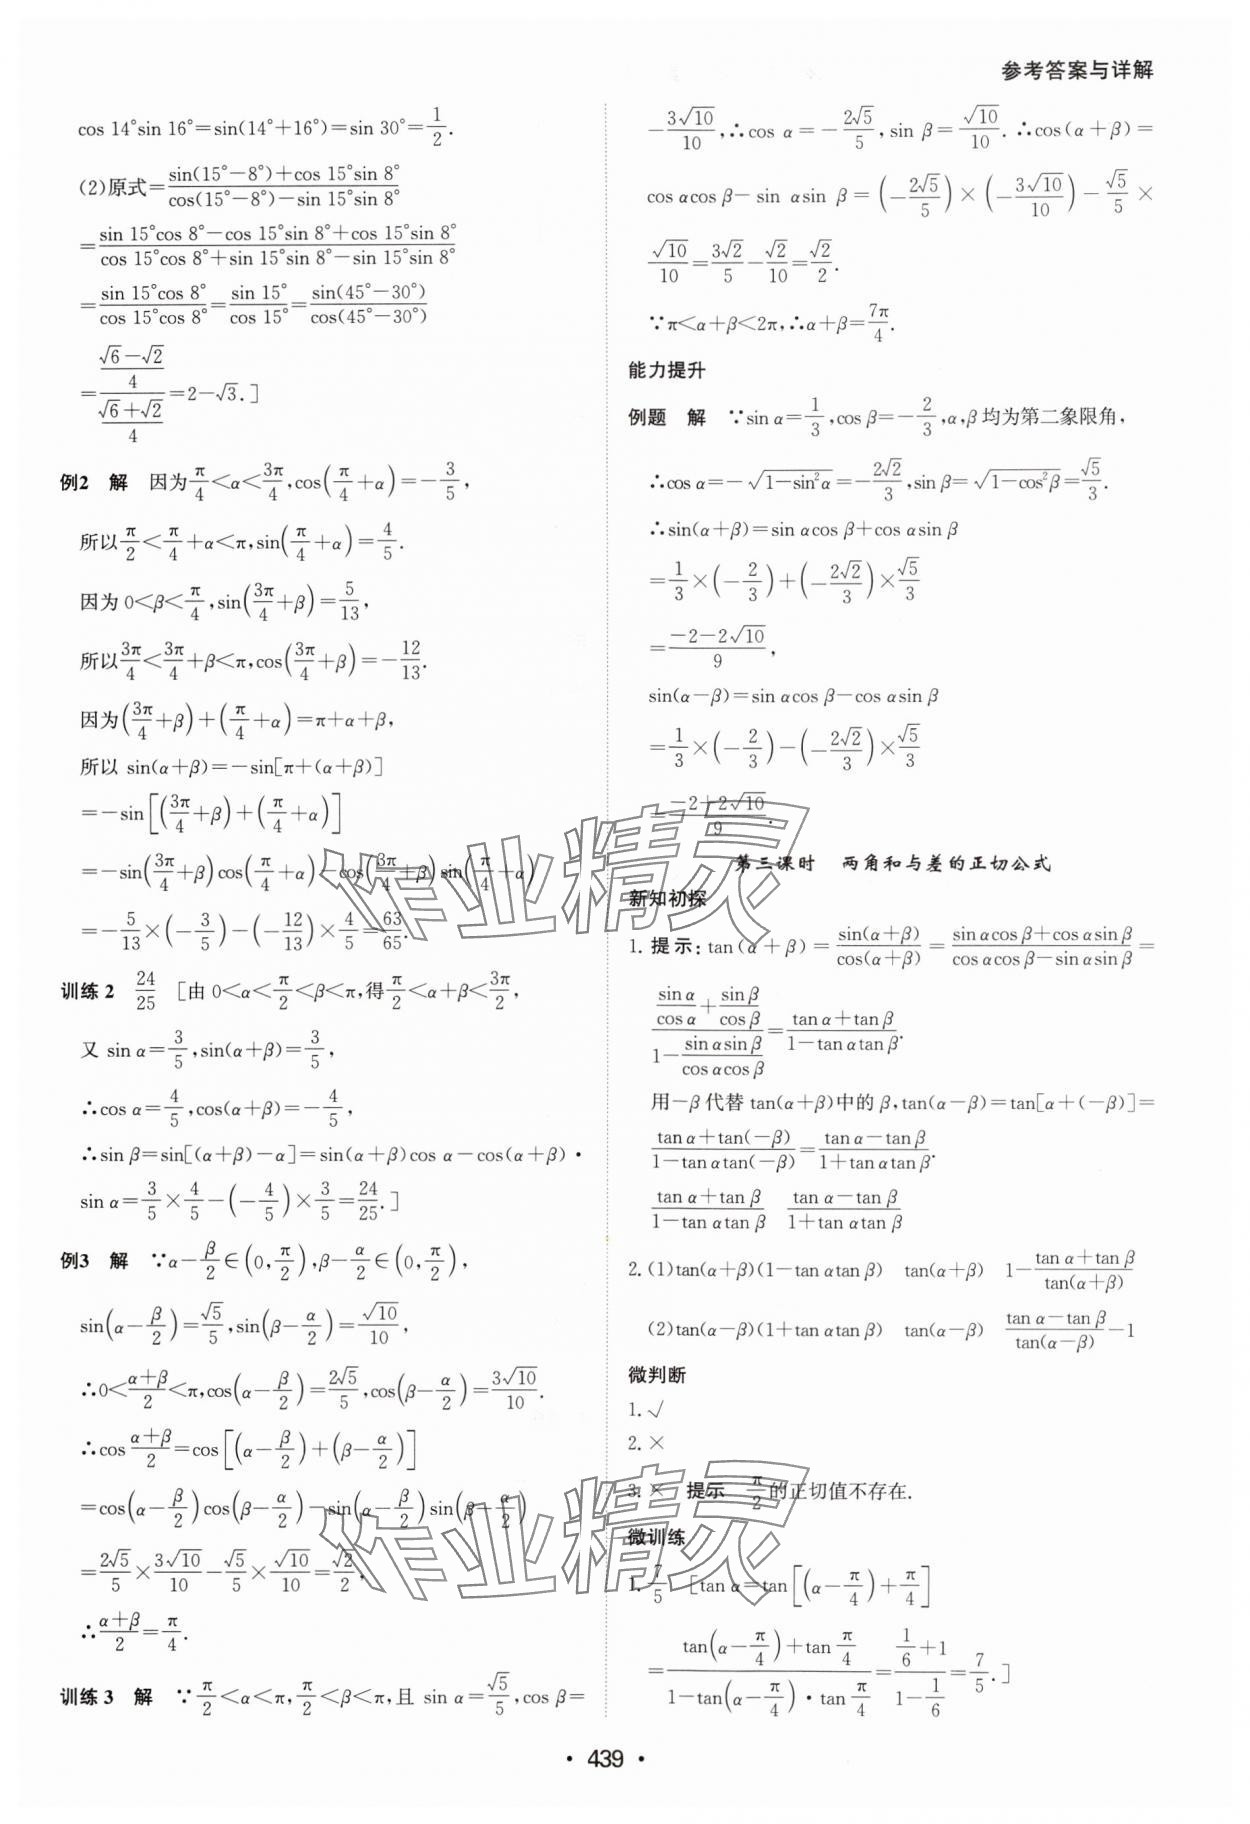 参考答案与详解
cos 14°sin 16°=sin(14°+16°)=sin 30°=1/2.
(2)原式=[sin(15°-8°)+cos 15°sin 8°]/[cos(15°-8°)-sin 15°sin 8°]
=[sin 15°cos 8°-cos 15°sin 8°+cos 15°sin 8°]/[cos 15°cos 8°+sin 15°sin 8°-sin 15°sin 8°]
=(sin 15°cos 8°)/(cos 15°cos 8°)=(sin 15°)/(cos 15°)=sin(45°-30°)/cos(45°-30°)
=[(√6-√2)/4]/[(√6+√2)/4]=2-√3.]
例2 解 因为π/4<α<3π/4,cos(π/4+α)=-3/5,
所以π/2<π/4+α<π,sin(π/4+α)=4/5.
因为 0<β<π/4,sin(3π/4+β)=5/13,
所以3π/4<3π/4+β<π,cos(3π/4+β)=-12/13.
因为(3π/4+β)+(π/4+α)=π+α+β,
所以 sin(α+β)=-sin[π+(α+β)]
=-sin[(3π/4+β)+(π/4+α)]
=-sin(3π/4+β)cos(π/4+α)-cos(3π/4+β)sin(π/4+α)
=-5/13×(-3/5)-(-12/13)×4/5=63/65.
训练2 24/25 [由 0<α<π/2<β<π,得π/2<α+β<3π/2,
又 sin α=3/5,sin(α+β)=3/5,
∴cos α=4/5,cos(α+β)=-4/5,
∴sin β=sin[(α+β)-α]=sin(α+β)cos α-cos(α+β)·
sin α=3/5×4/5-(-4/5)×3/5=24/25.]
例3 解 ∵α-β/2∈(0,π/2),β-α/2∈(0,π/2),
sin(α-β/2)=√5/5,sin(β-α/2)=√10/10,
∴0<(α+β)/2<π,cos(α-β/2)=2√5/5,cos(β-α/2)=3√10/10.
∴cos (α+β)/2=cos[(α-β/2)+(β-α/2)]
=cos(α-β/2)cos(β-α/2)-sin(α-β/2)sin(β-α/2)
=2√5/5×3√10/10-√5/5×√10/10=√2/2,
∴(α+β)/2=π/4.
训练3 解 ∵π/2<α<π,π/2<β<π,且 sin α=√5/5,cos β=
-3√10/10,∴cos α=-2√5/5,sin β=√10/10. ∴cos(α+β)=
cos αcos β-sin αsin β=(-2√5/5)×(-3√10/10)-√5/5×
√10/10=3√2/5-√2/10=√2/2.
∵π<α+β<2π,∴α+β=7π/4.
能力提升
例题 解 ∵sin α=1/3,cos β=-2/3,α,β均为第二象限角,
∴cos α=-√(1-sin²α)=-2√2/3,sin β=√(1-cos²β)=√5/3.
∴sin(α+β)=sin αcos β+cos αsin β
=1/3×(-2/3)+(-2√2/3)×√5/3
=(-2-2√10)/9,
sin(α-β)=sin αcos β-cos αsin β
=1/3×(-2/3)-(-2√2/3)×√5/3
=(-2+2√10)/9.
第三课时 两角和与差的正切公式
新知初探
1.提示:tan(α+β)=sin(α+β)/cos(α+β)=(sin αcos β+cos αsin β)/(cos αcos β-sin αsin β)=
(sin α/cos α+sin β/cos β)/(1-sin αsin β/cos αcos β)=(tan α+tan β)/(1-tan αtan β).
用-β代替 tan(α+β)中的β,tan(α-β)=tan[α+(-β)]=
[tan α+tan(-β)]/[1-tan αtan(-β)]=(tan α-tan β)/(1+tan αtan β).
(tan α+tan β)/(1-tan αtan β) (tan α-tan β)/(1+tan αtan β)
2.(1)tan(α+β)(1-tan αtan β) tan(α+β) 1-(tan α+tan β)/tan(α+β)
(2)tan(α-β)(1+tan αtan β) tan(α-β) (tan α-tan β)/tan(α-β)-1
微判断
1.√
2.×
3.× 提示 π/2的正切值不存在.
微训练
1.7/5 [tan α=tan[(α-π/4)+π/4]
=[tan(α-π/4)+tan π/4]/[1-tan(α-π/4)·tan π/4]=(1/6+1)/(1-1/6)=7/5.]
· 439 ·
作业精灵
作业精灵